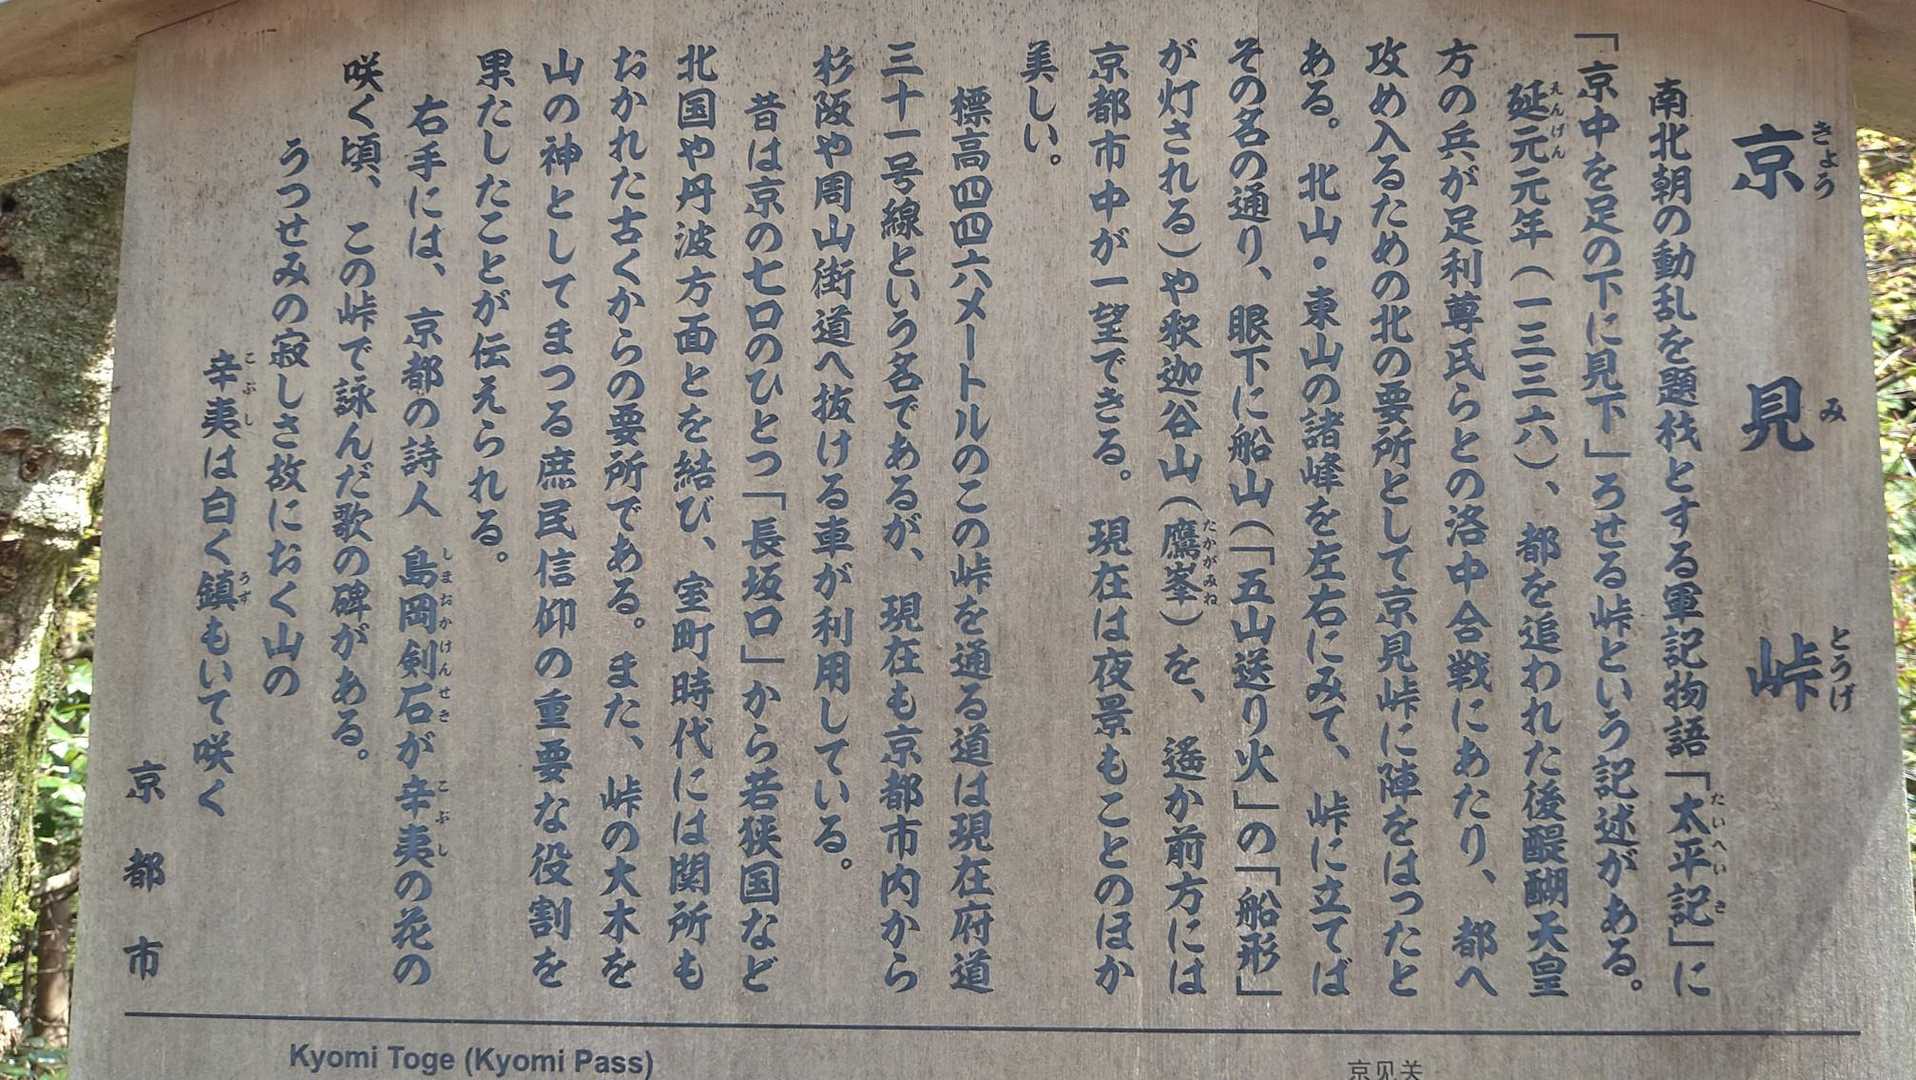 京見峠
きょうみとうげ
南北朝の動乱を題材とする軍記物語「太平記」に
たいへいき
「京中を足の下に見下」ろせる峠という記述がある。
延元元年(一三三六)、都を追われた後醍醐天皇
えんげん
方の兵が足利尊氏らとの洛中合戦にあたり、都へ
攻め入るための北の要所として京見峠に陣をはったと
ある。北山・東山の諸峰を左右にみて、峠に立てば
その名の通り、眼下に船山(「五山送り火」の「船形」
が灯される)や釈迦谷山(鷹峯)を、遙か前方には
たかがみね
京都市中が一望できる。現在は夜景もことのほか
美しい。
標高四四六メートルのこの峠を通る道は現在府道
三十一号線という名であるが、現在も京都市内から
杉阪や周山街道へ抜ける車が利用している。
昔は京の七口のひとつ「長坂口」から若狭国など
北国や丹波方面とを結び、室町時代には関所も
おかれた古くからの要所である。また、峠の大木を
山の神としてまつる庶民信仰の重要な役割を
果たしたことが伝えられる。
右手には、京都の詩人 島岡剣石が辛夷の花の
しまおかけんせき こぶし
咲く頃、この峠で詠んだ歌の碑がある。
うつせみの寂しさ故におく山の
辛夷は白く鎮もいて咲く
こぶし うず
京都市
Kyomi Toge (Kyomi Pass)
京见关